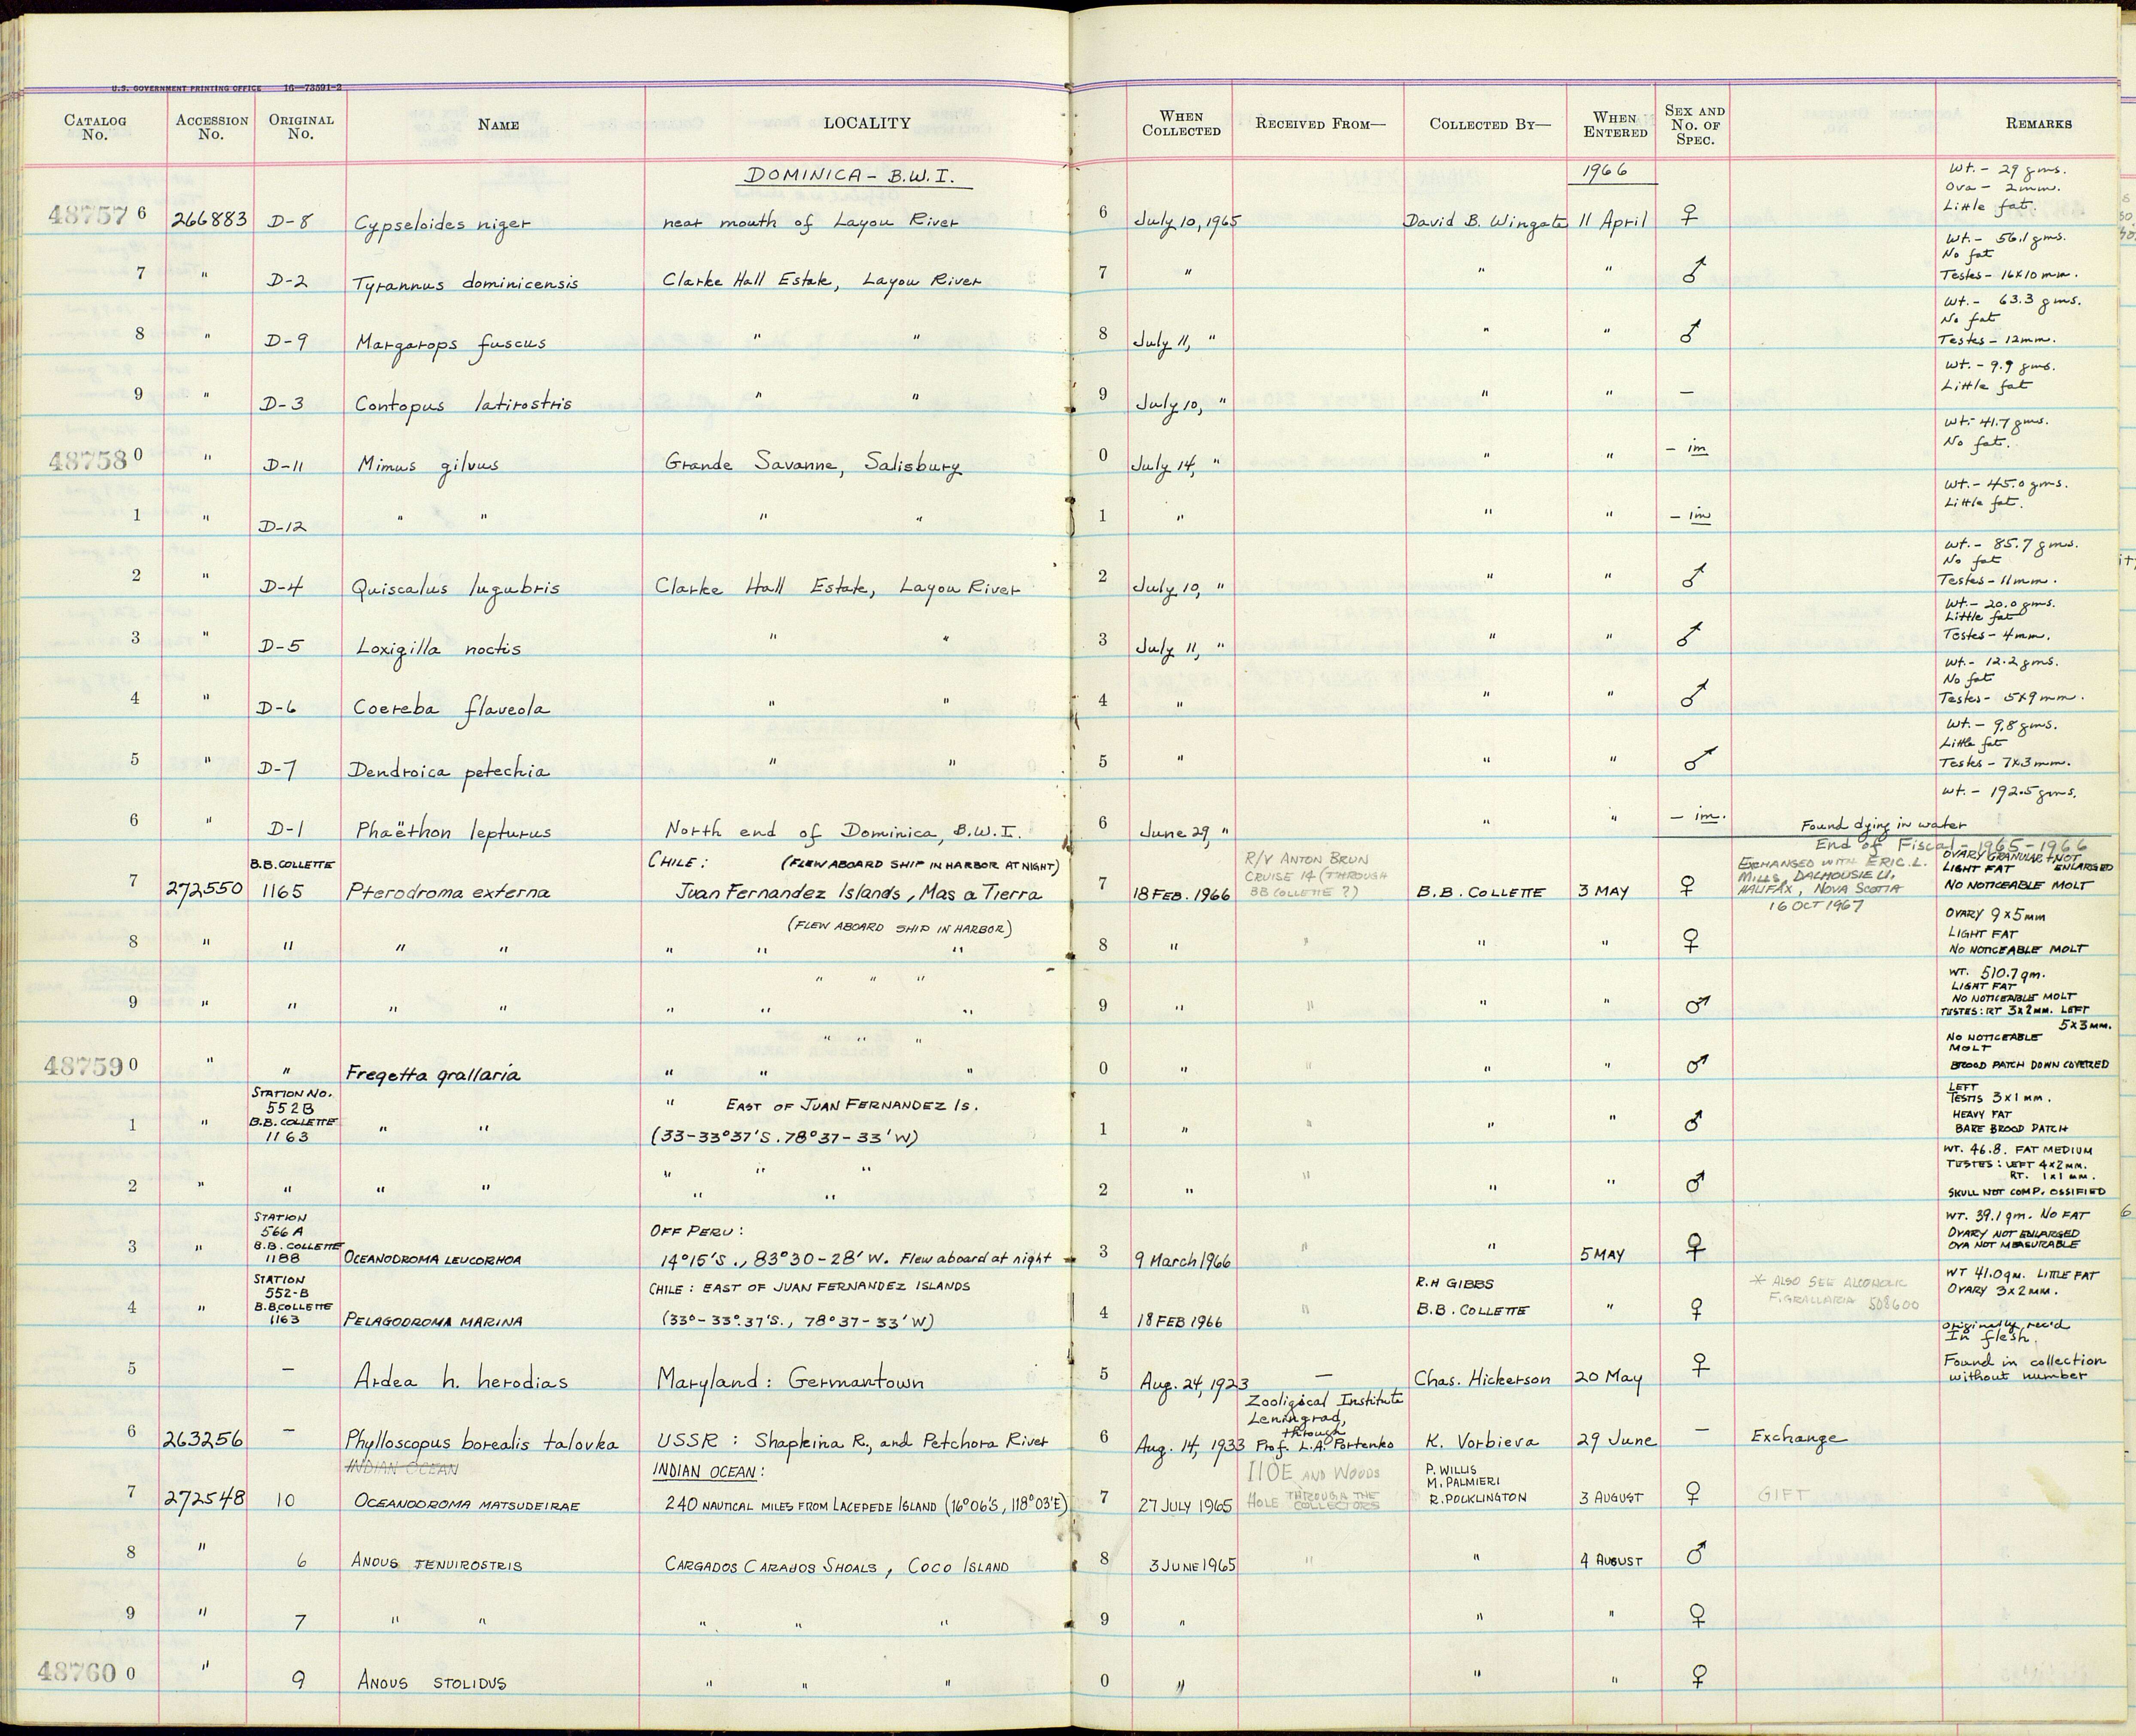 U.S. GOVERNMENT PRINTING OFFICE 16—73591-2
CATALOG No. ACCESSION No. ORIGINAL No. NAME LOCALITY WHEN COLLECTED RECEIVED FROM— COLLECTED BY— WHEN ENTERED SEX AND No. OF SPEC. REMARKS
DOMINICA - B.W.I. 1966
Wt. - 29 gms.
Ova - 2mm.
Little fat.
48757 6 266883 D-8 Cypseloides niger near mouth of Layou River 6 July 10, 1965 David B. Wingate 11 April ♀
Wt. - 56.1 gms.
No fat
Testes - 16x10 mm.
7 " D-2 Tyrannus dominicensis Clarke Hall Estate, Layou River 7 " " " ♂
Wt. - 63.3 gms.
No fat
Testes - 12mm.
8 " D-9 Margarops fuscus " " 8 July 11, " " " ♂
Wt. - 9.9 gms.
Little fat
9 " D-3 Contopus latirostris " " 9 July 10, " " " –
Wt. - 41.7 gms.
No fat.
48758 0 " D-11 Mimus gilvus Grande Savanne, Salisbury 0 July 14, " " " – im
Wt. - 45.0 gms.
Little fat.
1 " D-12 " " " " 1 " " " – im
Wt. - 85.7 gms.
No fat
Testes - 11mm.
2 " D-4 Quiscalus lugubris Clarke Hall Estate, Layou River 2 July 10, " " " ♂
Wt. - 20.0 gms.
Little fat
Testes - 4mm.
3 " D-5 Loxigilla noctis " " 3 July 11, " " " ♂
Wt. - 12.2 gms.
No fat
Testes - 5x9mm.
4 " D-6 Coereba flaveola " " 4 " " " ♂
Wt. - 9.8 gms.
Little fat
Testes - 7x3mm.
5 " D-7 Dendroica petechia " " 5 " " " ♂
wt. - 192.5 gms.
6 " D-1 Phaëthon lepturus North end of Dominica, B.W.I. 6 June 29, " " " – im. Found dying in water
End of Fiscal - 1965-1966
B.B. COLLETTE CHILE: (FLEW ABOARD SHIP IN HARBOR AT NIGHT)
7 272550 1165 Pterodroma externa Juan Fernandez Islands, Mas a Tierra 7 18 FEB. 1966
R/V ANTON BRUN
CRUISE 14 (THROUGH
BB COLLETTE ?)
B.B. COLLETTE 3 MAY ♀
EXCHANGED WITH ERIC. L.
MILLS, DALHOUSIE U.
HALIFAX, NOVA SCOTIA
16 OCT 1967
OVARY GRANULAR + NOT ENLARGED
LIGHT FAT
NO NOTICEABLE MOLT
(FLEW ABOARD SHIP IN HARBOR)
8 " " " " " " " 8 " " " " ♀
OVARY 9x5MM
LIGHT FAT
NO NOTICEABLE MOLT
" " "
9 " " " " " " " 9 " " " " ♂
WT. 510.7 gm.
LIGHT FAT
NO NOTICEABLE MOLT
TESTES: RT 3x2MM. LEFT
5x3MM.
" " "
48759 0 " " Fregetta grallaria " " " 0 " " " " ♂
NO NOTICEABLE
MOLT
BROOD PATCH DOWN COVERED
STATION NO.
552B
B.B. COLLETTE
1163
1 " " " " EAST OF JUAN FERNANDEZ IS.
(33-33°37'S. 78°37-33'W) 1 " " " " ♂
LEFT
TESTIS 3x1MM.
HEAVY FAT
BARE BROOD PATCH
2 " " " " " " " " " 2 " " " " ♂
WT. 46.8. FAT MEDIUM
TESTES: LEFT 4x2MM.
RT. 1x1MM.
SKULL NOT COMP. OSSIFIED
STATION
566 A
B.B. COLLETTE
1188
OFF PERU:
3 " OCEANODROMA LEUCORHOA 14°15'S., 83°30-28'W. Flew aboard at night 3 9 March 1966 " " 5 MAY ♀
WT. 39.1 gm. NO FAT
OVARY NOT ENLARGED
OVA NOT MEASURABLE
STATION
552-B
B.B. COLLETTE
1163
CHILE: EAST OF JUAN FERNANDEZ ISLANDS
4 " PELAGODROMA MARINA (33°-33°.37'S., 78°37-33'W) 4 18 FEB 1966 "
R.H GIBBS
B.B. COLLETTE " ♀
* ALSO SEE ALCOHOLIC
F. GRALLARIA 508600
WT 41.0gm. LITTLE FAT
OVARY 3x2MM.
originally rec'd
In flesh.
Found in collection
without number
5 – Ardea h. herodias Maryland: Germantown 5 Aug. 24, 1923 – Chas. Hickerson 20 May ♀
Zooligical Institute
Leningrad,
through
Prof. L.A. Portenko
6 263256 – Phylloscopus borealis talovka USSR: Shapkina R., and Petchora River 6 Aug. 14, 1933 K. Vorbieva 29 June – Exchange
INDIAN OCEAN INDIAN OCEAN:
7 272548 10 OCEANODROMA MATSUDEIRAE 240 NAUTICAL MILES FROM LACEPEDE ISLAND (16°06'S, 118°03'E) 7 27 JULY 1965
IIOE AND WOODS
HOLE THROUGH THE
COLLECTORS
P. WILLIS
M. PALMIERI
R. POCKLINGTON 3 AUGUST ♀ GIFT
8 " 6 ANOUS TENUIROSTRIS CARGADOS CARAJOS SHOALS, COCO ISLAND 8 3 JUNE 1965 " " 4 AUGUST ♂
9 " 7 " " " " " 9 " " " ♀
48760 0 " 9 ANOUS STOLIDUS " " " 0 " " " ♀